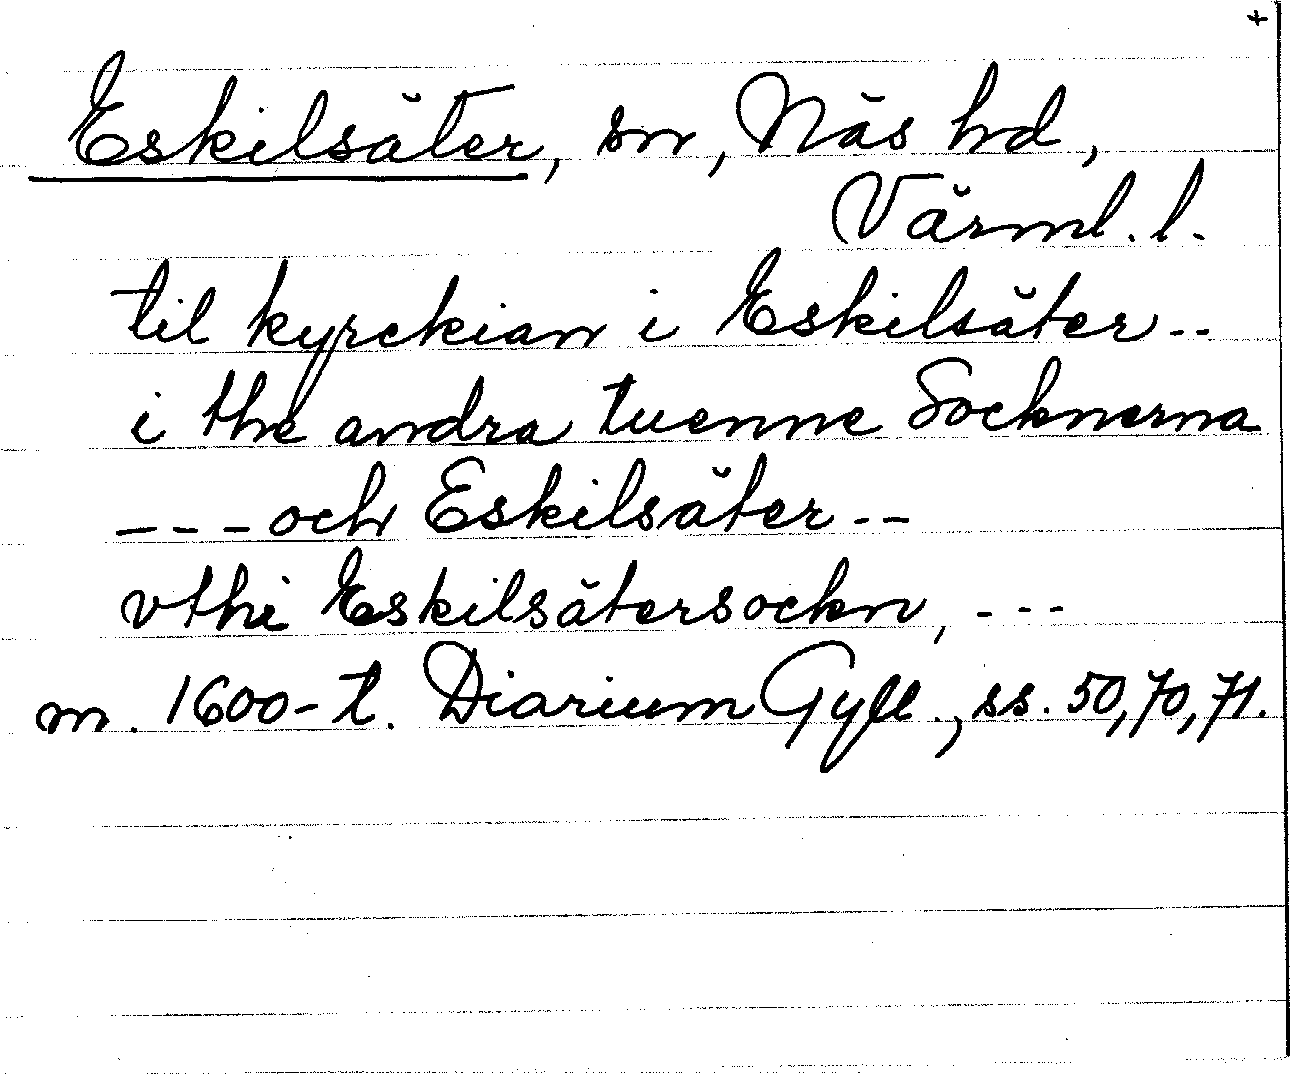 +
Eskilsäter, sn, Näs hd,
Värml. l.
til kyrckian i Eskilsäter--
i the andra tuenne Socknerna
---och Eskilsäter--
vthi Eskilsätersockn, ---
m. 1600-t. Diarium Gyll., ss. 50, 70, 71.